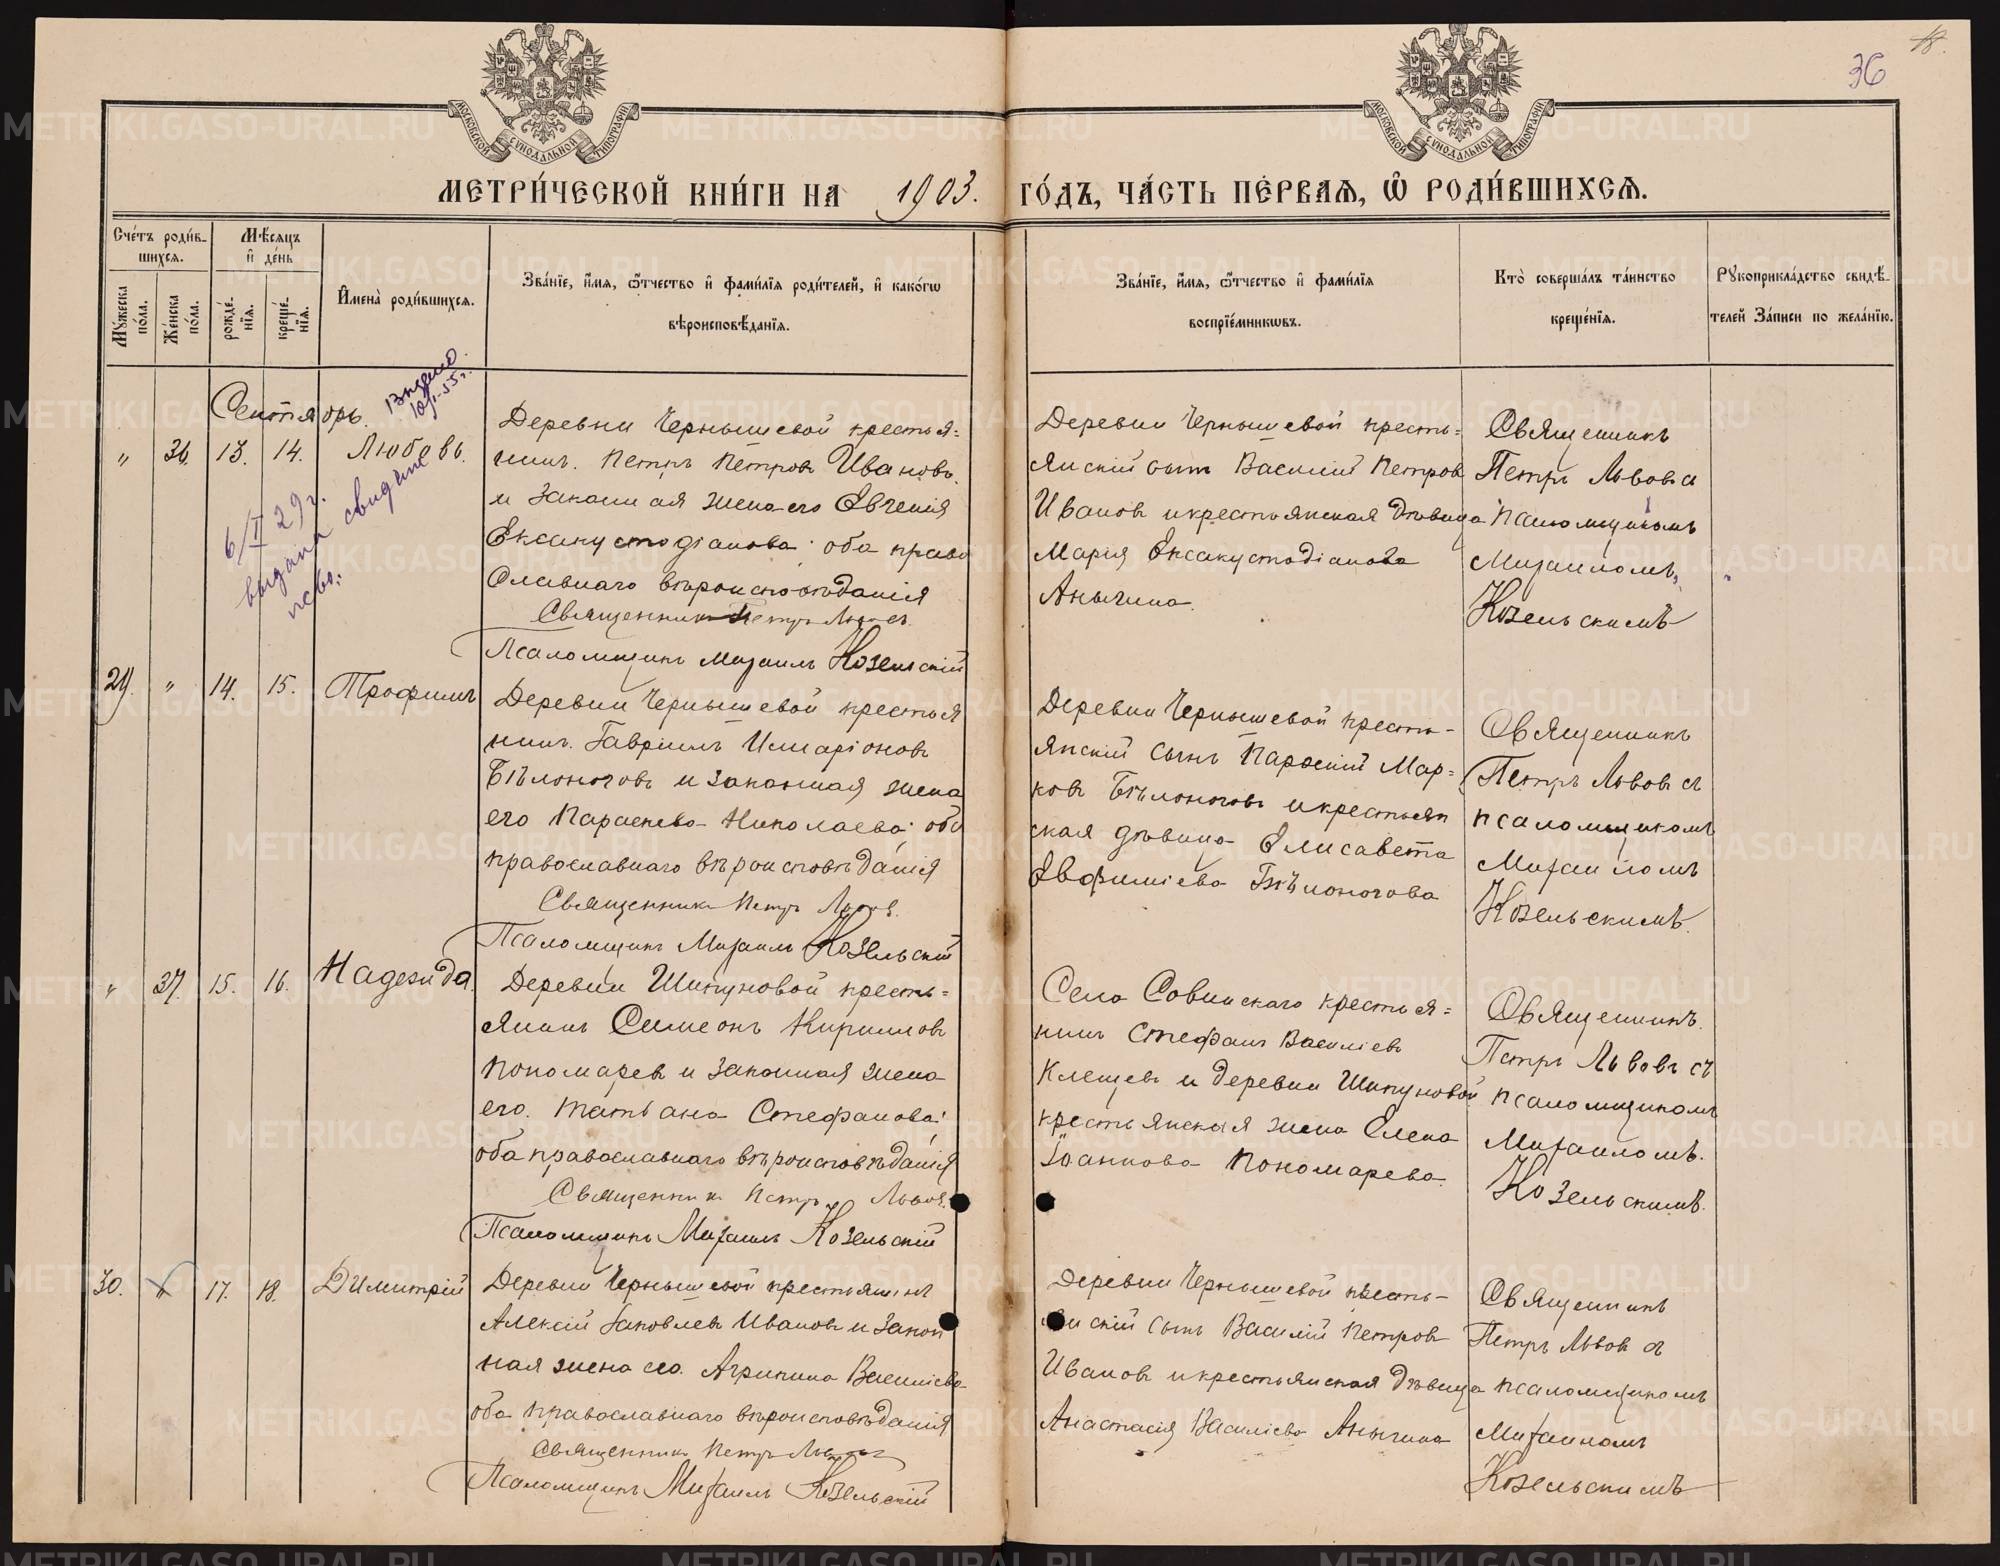 36
18.
МОСКОВСКОЙ СУНОДАЛЬНОЙ ТИПОГРАФІИ
МОСКОВСКОЙ СУНОДАЛЬНОЙ ТИПОГРАФІИ
МЕТРИ́ЧЕСКОЙ КНИ́ГИ НА 1903. ГО́ДЪ, ЧА́СТЬ ПЕ́РВАѦ, Ѽ РОДИ́ВШИХСѦ.
Сче́тъ роди́в-
шихсѧ.
Мꙋжеска по́ла.
Же́нска по́ла.
Мѣ́сѧцъ
и҆ де́нь
рожде́нїѧ.
креще́нїѧ.
И҆мена̀ роди́вшихсѧ.
Зва́нїе, и҆́мѧ, ѻ҆́тчество и҆ фами́лїѧ роди́телей, и҆ како́гѡ
вѣроисповѣ́данїѧ.
Зва́нїе, и҆́мѧ, ѻ҆́тчество и҆ фами́лїѧ
воспрїе́мникѡвъ.
Кто̀ соверша́лъ та́инство
креще́нїѧ.
Рꙋкоприкла́дство свидѣ́-
телей За́писи по жела́нїю.
Сентябрь.
Выдано
6/I 29 г.
выдана
„ 36. 13. 14. Любовь.
Деревни Чернышевой крестья=
нинъ Петръ Петровъ Ивановъ
и законная жена его Евгенія
Ексакустодіанова: оба право
славнаго вѣроисповѣданія
Священникъ Петръ Львовъ.
Псаломщикъ Михаилъ Козельскій
Деревни Чернышевой кресть=
янскій сынъ Василій Петровъ
Ивановъ и крестьянская дѣвица
Марія Ексакустодіанова
Аньгина.
Священникъ
Петръ Львовъ съ
псаломщикомъ
Михаиломъ
Козельскимъ
29. „ 14. 15. Трофимъ
Деревни Чернышевой крестья
нинъ Гавріилъ Иларіоновъ
Бѣлоноговъ и законная жена
его Параскева Николаева: оба
православнаго вѣроисповѣданія
Священникъ Петръ Львовъ.
Псаломщикъ Михаилъ Козельскій
Деревни Чернышевой кресть-
янскій сынъ Мар=
ковъ Бѣлоноговъ и крестьян
ская дѣвица Елисавета
Евфиміева Бѣлоногова
Священникъ
Петръ Львовъ съ
псаломщикомъ
Михаиломъ
Козельскимъ.
„ 37. 15. 16. Надежда.
Деревни Шипуновой кресть=
янинъ Симеонъ Кирилловъ
Пономаревъ и законная жена
его Татьяна Стефанова:
оба православнаго вѣроисповѣданія
Священникъ Петръ Львовъ.
Псаломщикъ Михаилъ Козельскій
Села Савинскаго крестья=
нинъ Стефанъ Василіевъ
Клещевъ и деревни Шипуновой
крестьянская жена Елена
Іоаннова Пономарева.
Священникъ.
Петръ Львовъ съ
псаломщикомъ
Михаиломъ.
Козельскимъ.
30. „ 17. 18. Димитрій
Деревни Чернышевой крестьянинъ
Алексій Іаковлевъ Ивановъ и закон
ная жена его Агрипина Василіева
оба православнаго вѣроисповѣданія
Священникъ Петръ Львовъ
Псаломщикъ Михаилъ Козельскій
Деревни Чернышевой кресть-
янскій сынъ Василій Петровъ
Ивановъ и крестьянская дѣвица
Анастасія Василіева Аньгина
Священникъ
Петръ Львовъ съ
псаломщикомъ
Михаиломъ
Козельскимъ
METRIKI.GASO-URAL.RU